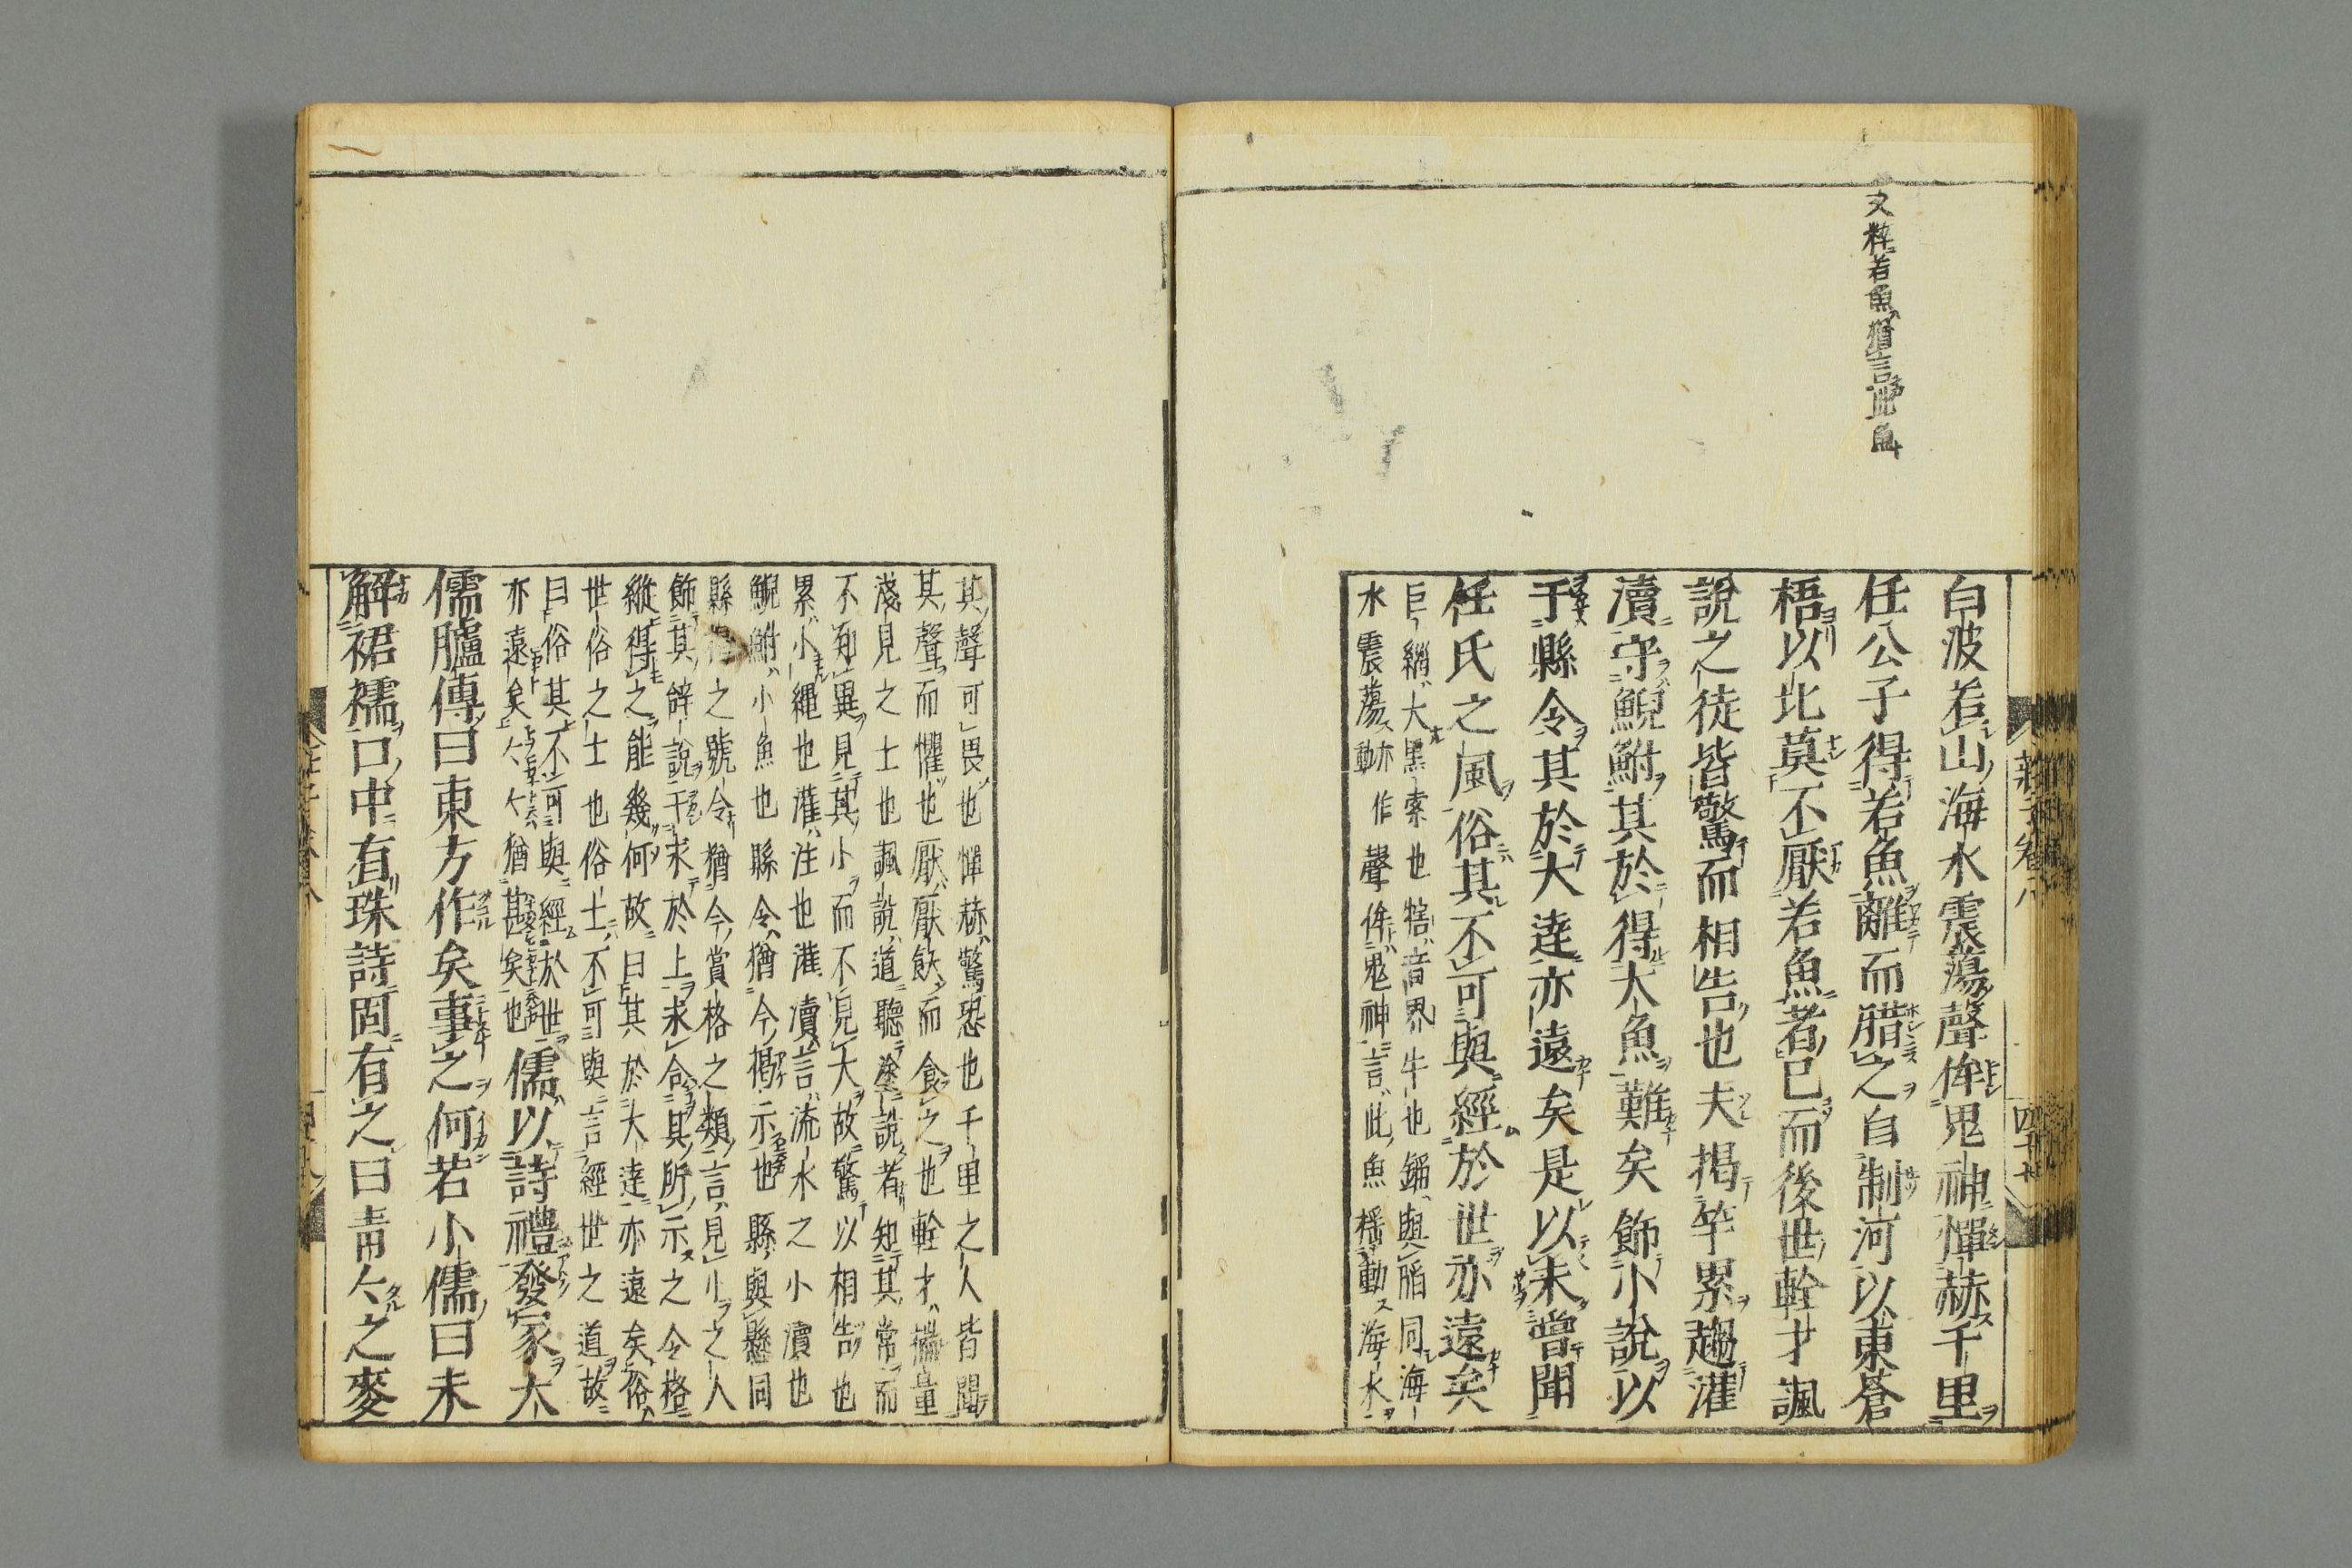 文粹若魚猶言此魚
白波若山海水震蕩聲侔鬼神憚赫千里
任公子得若魚離而腊之自制河以東蒼
梧以北莫不厭若魚者已而後世輇才諷
說之徒皆驚而相告也夫揭竿累趨灌
瀆守鯢鮒其於得大魚難矣飾小說以
干縣令其於大達亦遠矣是以未嘗聞
任氏之風俗其不可與經於世亦遠矣
巨緇大黑索也犗音界牛也錎與陷同海
水震蕩亦動作聲侔鬼神言此魚搖動海水
莊子卷八
四十七
其聲可畏也憚赫驚恐也千里之人皆聞
其聲而懼也厭厭飫而食之也輇才揣量
淺見之士也諷說道聽塗說者知其常而
不知異見其小而不見大故驚以相告也
累小繩也灌注也灌瀆言流水之小瀆也
鯢鮒小魚也縣令猶今揭示也縣與懸同
縣之號令猶今賞格之類言見小之人
飾其辭說干求於上求合其所示之令格
縱得之能幾何故曰其於大達亦遠矣俗
世俗之士也俗士不可與言經世之道故
曰俗其不可與經於世
亦遠矣人人猶甚矣也儒以詩禮發冢大
儒臚傳曰東方作矣事之何若小儒曰未
解裙襦口中有珠詩固有之曰青人之麥